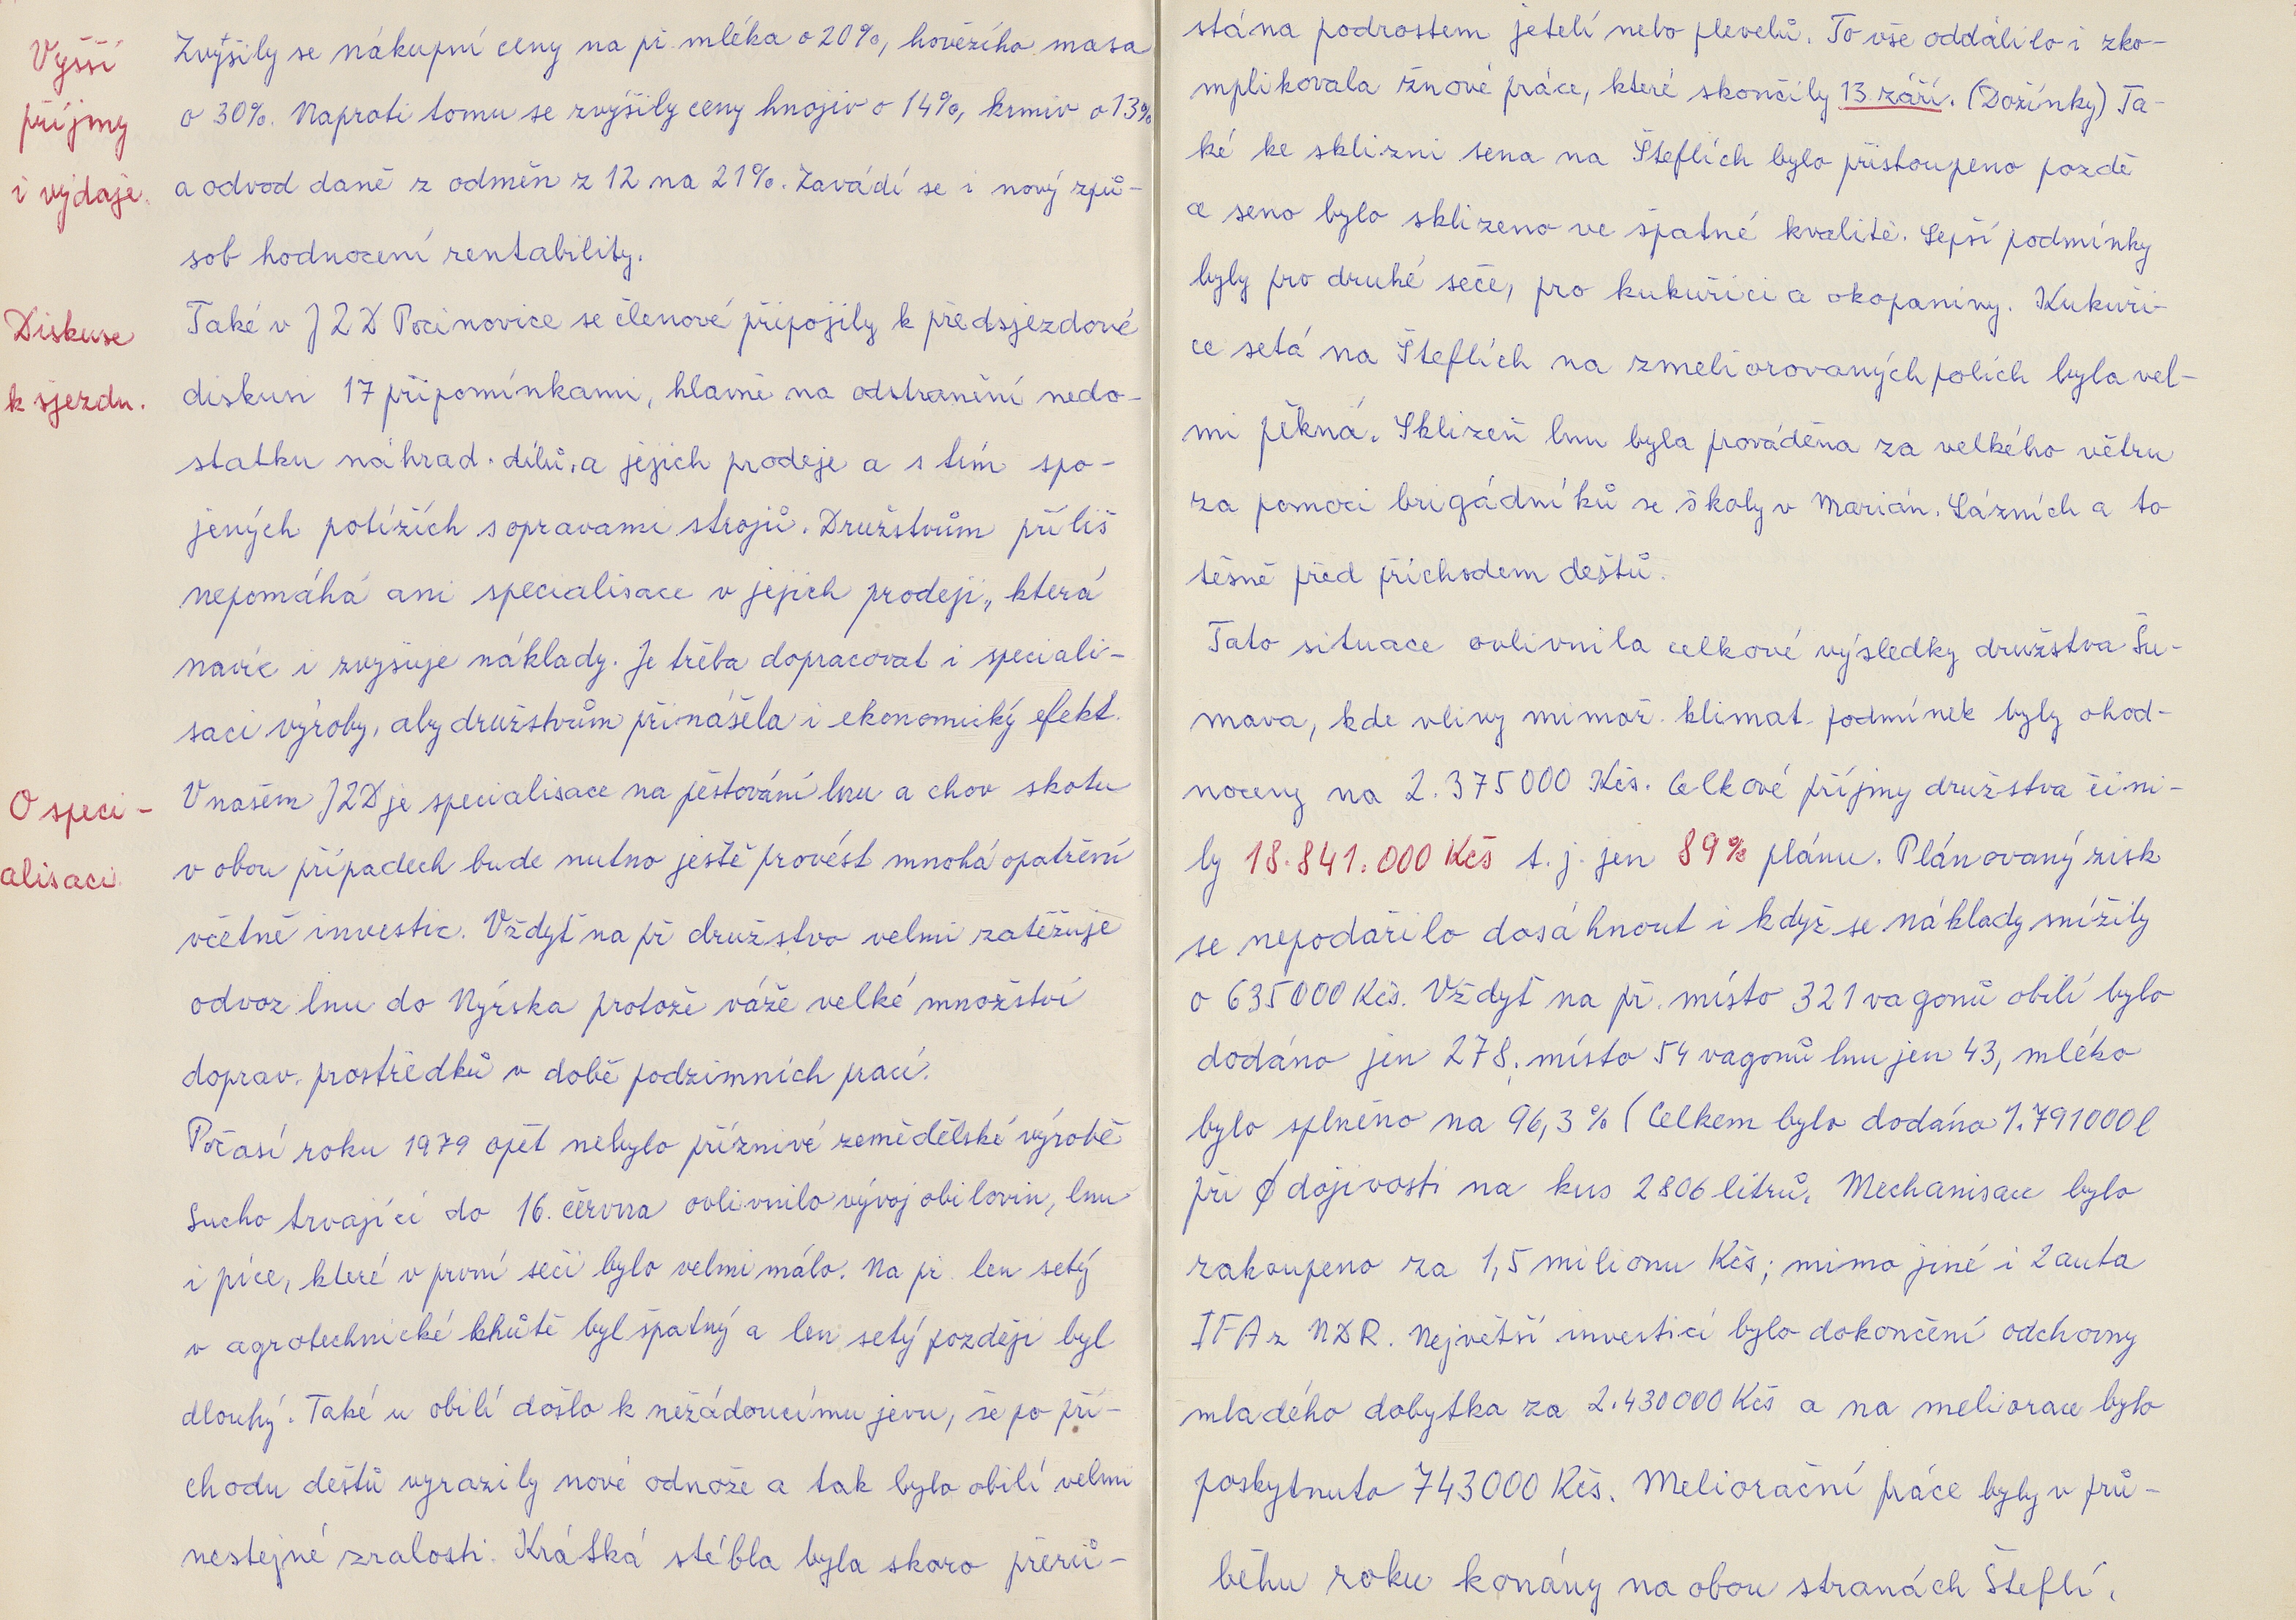 Vyšší
příjmy
i výdaje.
Zvýšily se nákupní ceny na př. mléka o 20%, hovězího masa
o 30%. Naproti tomu se zvýšily ceny hnojiv o 14%, krmiv o 13%
a odvod daně z odměn z 12 na 21%. Zavádí se i nový způ-
sob hodnocení rentability.
Diskuse
k sjezdu.
Také v JZD Pocinovice se členové připojily k předsjezdové
diskusi 17 připomínkami, hlavně na odstranění nedo-
statku náhrad. dílů, a jejich prodeje a s tím spo-
jených potížích s opravami strojů. Družstvům příliš
nepomáhá ani specialisace v jejich prodeji, která
navíc i zvyšuje náklady. Je třeba dopracovat i speciali-
saci výroby, aby družstvům přinášela i ekonomický efekt.
O speci-
alisaci.
V našem JZD je specialisace na pěstování lnu a chov skotu
v obou případech bude nutno ještě provést mnohá opatření
včetně investic. Vždyť na př družstvo velmi zatěžuje
odvoz lnu do Nýrska protože váže velké množství
doprav. prostředků v době podzimních prací.
Počasí roku 1979 opět nebylo příznivé zemědělské výrobě
Sucho trvající do 16. června ovlivnilo vývoj obilovin, lnu
i píce, které v první seči bylo velmi málo. Na př. len setý
v agrotechnické lhůtě byl špatný a len setý později byl
dlouhý. Také u obilí došlo k nežádoucímu jevu, že po pří-
chodu dešťů vyrazily nové odnože a tak bylo obilí velmi
nestejné zralosti. Krátká stébla byla skoro přerů-
stána podrostem jetelí nebo plevelů. To vše oddálilo i zko-
mplikovala žnové práce, které skončily 13 září. (Dožínky) Ta-
ké ke sklizni sena na Šteflích bylo přistoupeno pozdě
a seno bylo sklizeno ve špatné kvalitě. Lepší podmínky
byly pro druhé seče, pro kukuřici a okopaniny. Kukuři-
ce setá na Šteflích na zmeliorovaných polích byla vel-
mi pěkná. Sklizeň lnu byla prováděna za velkého větru
za pomoci brigádníků se školy v Marián. Lázních a to
těsně před příchodem dešťů.
Tato situace ovlivnila celkové výsledky družstva Šu-
mava, kde vlivy mimoř. klimat. podmínek byly ohod-
noceny na 2.375000 Kčs. Celkové příjmy družstva čini-
ly 18.841.000 Kčs t.j. jen 89% plánu. Plánovaný zisk
se nepodařilo dosáhnout i když se náklady snížily
o 635000 Kčs. Vždyť na př. místo 321 vagonů obilí bylo
dodáno jen 278, místo 54 vagonů lnu jen 43, mléko
bylo splněno na 96,3% (Celkem bylo dodáno 1.791000 l
při ∅ dojivosti na kus 2806 litrů. Mechanisace bylo
zakoupeno za 1,5 milionu Kčs; mimo jiné i 2 auta
IFA z NDR. Největší investicí bylo dokončení odchovny
mladého dobytka za 2.430000 Kčs a na meliorace bylo
poskytnuto 743000 Kčs. Meliorační práce byly v prů-
běhu roku konány na obou stranách Šteflí.